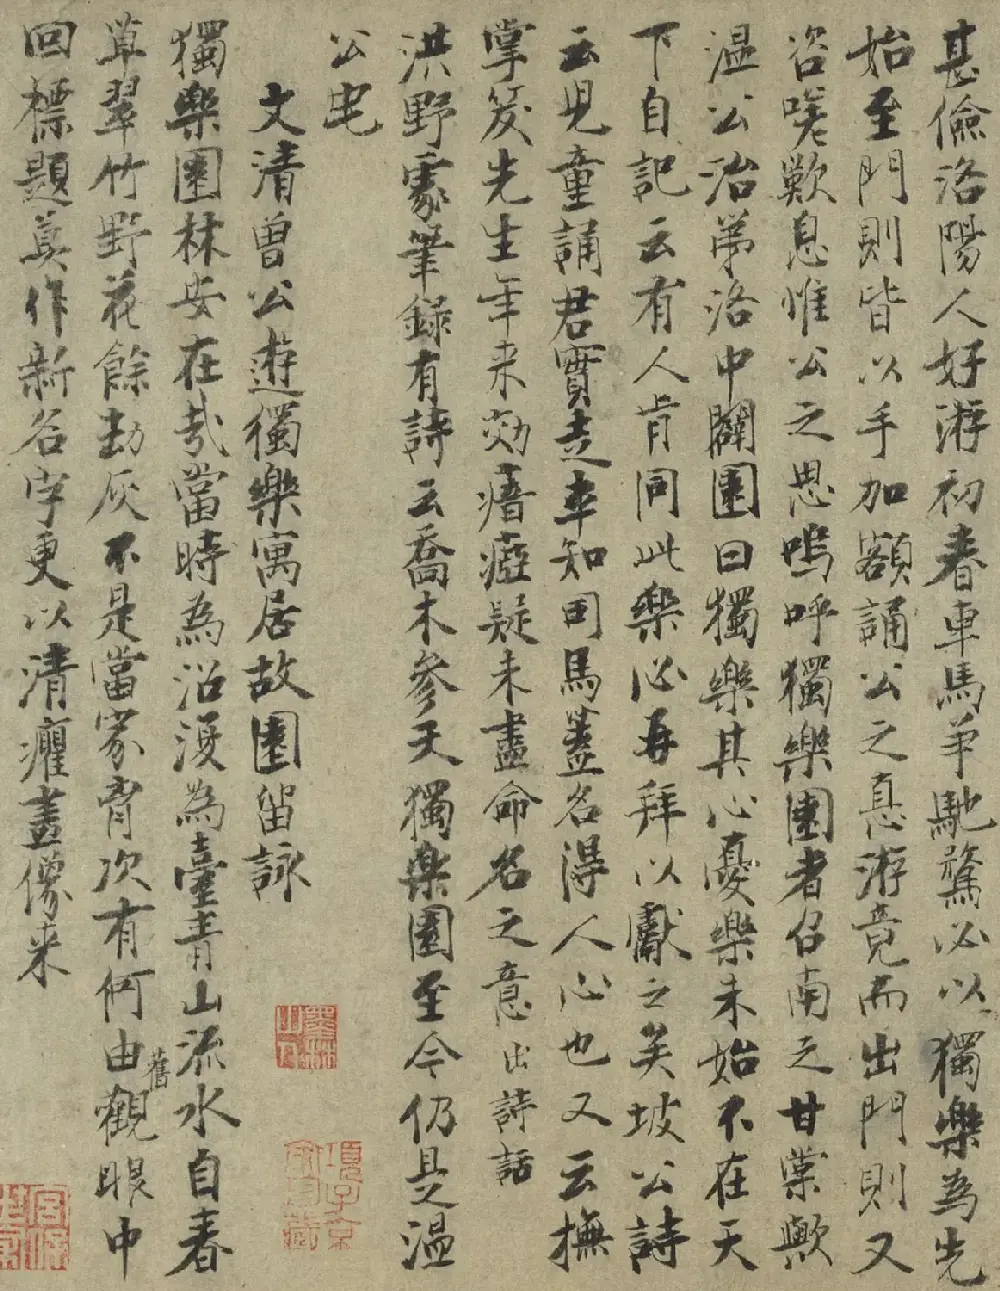 甚儉洛陽人好游初春車馬爭馳騖必以獨樂為先
始至門則皆以手加額誦公之息游竟而出門則又
咨嗟歎息惟公之思嗚呼獨樂園者召南之甘棠歟
温公治第洛中闢園曰獨樂其心憂樂未始不在天
下自記云有人肯同此樂必再拜以獻之矣坡公詩
云兒童誦君實走卒知司馬蓋名得人心也又云撫
掌笑先生年来効瘖瘂疑未盡命名之意出詩話
洪野處筆錄有詩云喬木參天獨樂園至今仍是温
公宅
文清曽公遊獨樂寓居故園留詠
獨樂園林安在哉當時為沼漫為臺青山流水自春
草翠竹野花餘劫灰不是當家胷次有何由舊觀眼中
回標題莫作新名字更以清癯畫像来
墨林山人
項子京家珍藏